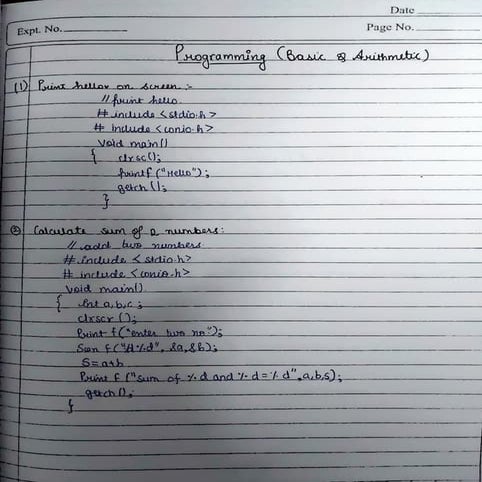 Date
Expt. No.
Page No.
Programming (Basic & Arithmetic)
(1) Print hellow on screen :-
// print hello
# include <stdio.h>
# include <conio.h>
Void main()
{ clrsc();
printf ("Hello");
getch ();
}
② Calculate sum of 2 numbers:
// add two numbers
# include <stdio.h>
# include <conio.h>
Void main()
{ Int a,b,c ;
clrscr ();
Print f ("enter two no");
f ("%d", &a, &b);
S = a+b
Print f ("sum of % d and % d = % d", a,b,s);
getch ();
}